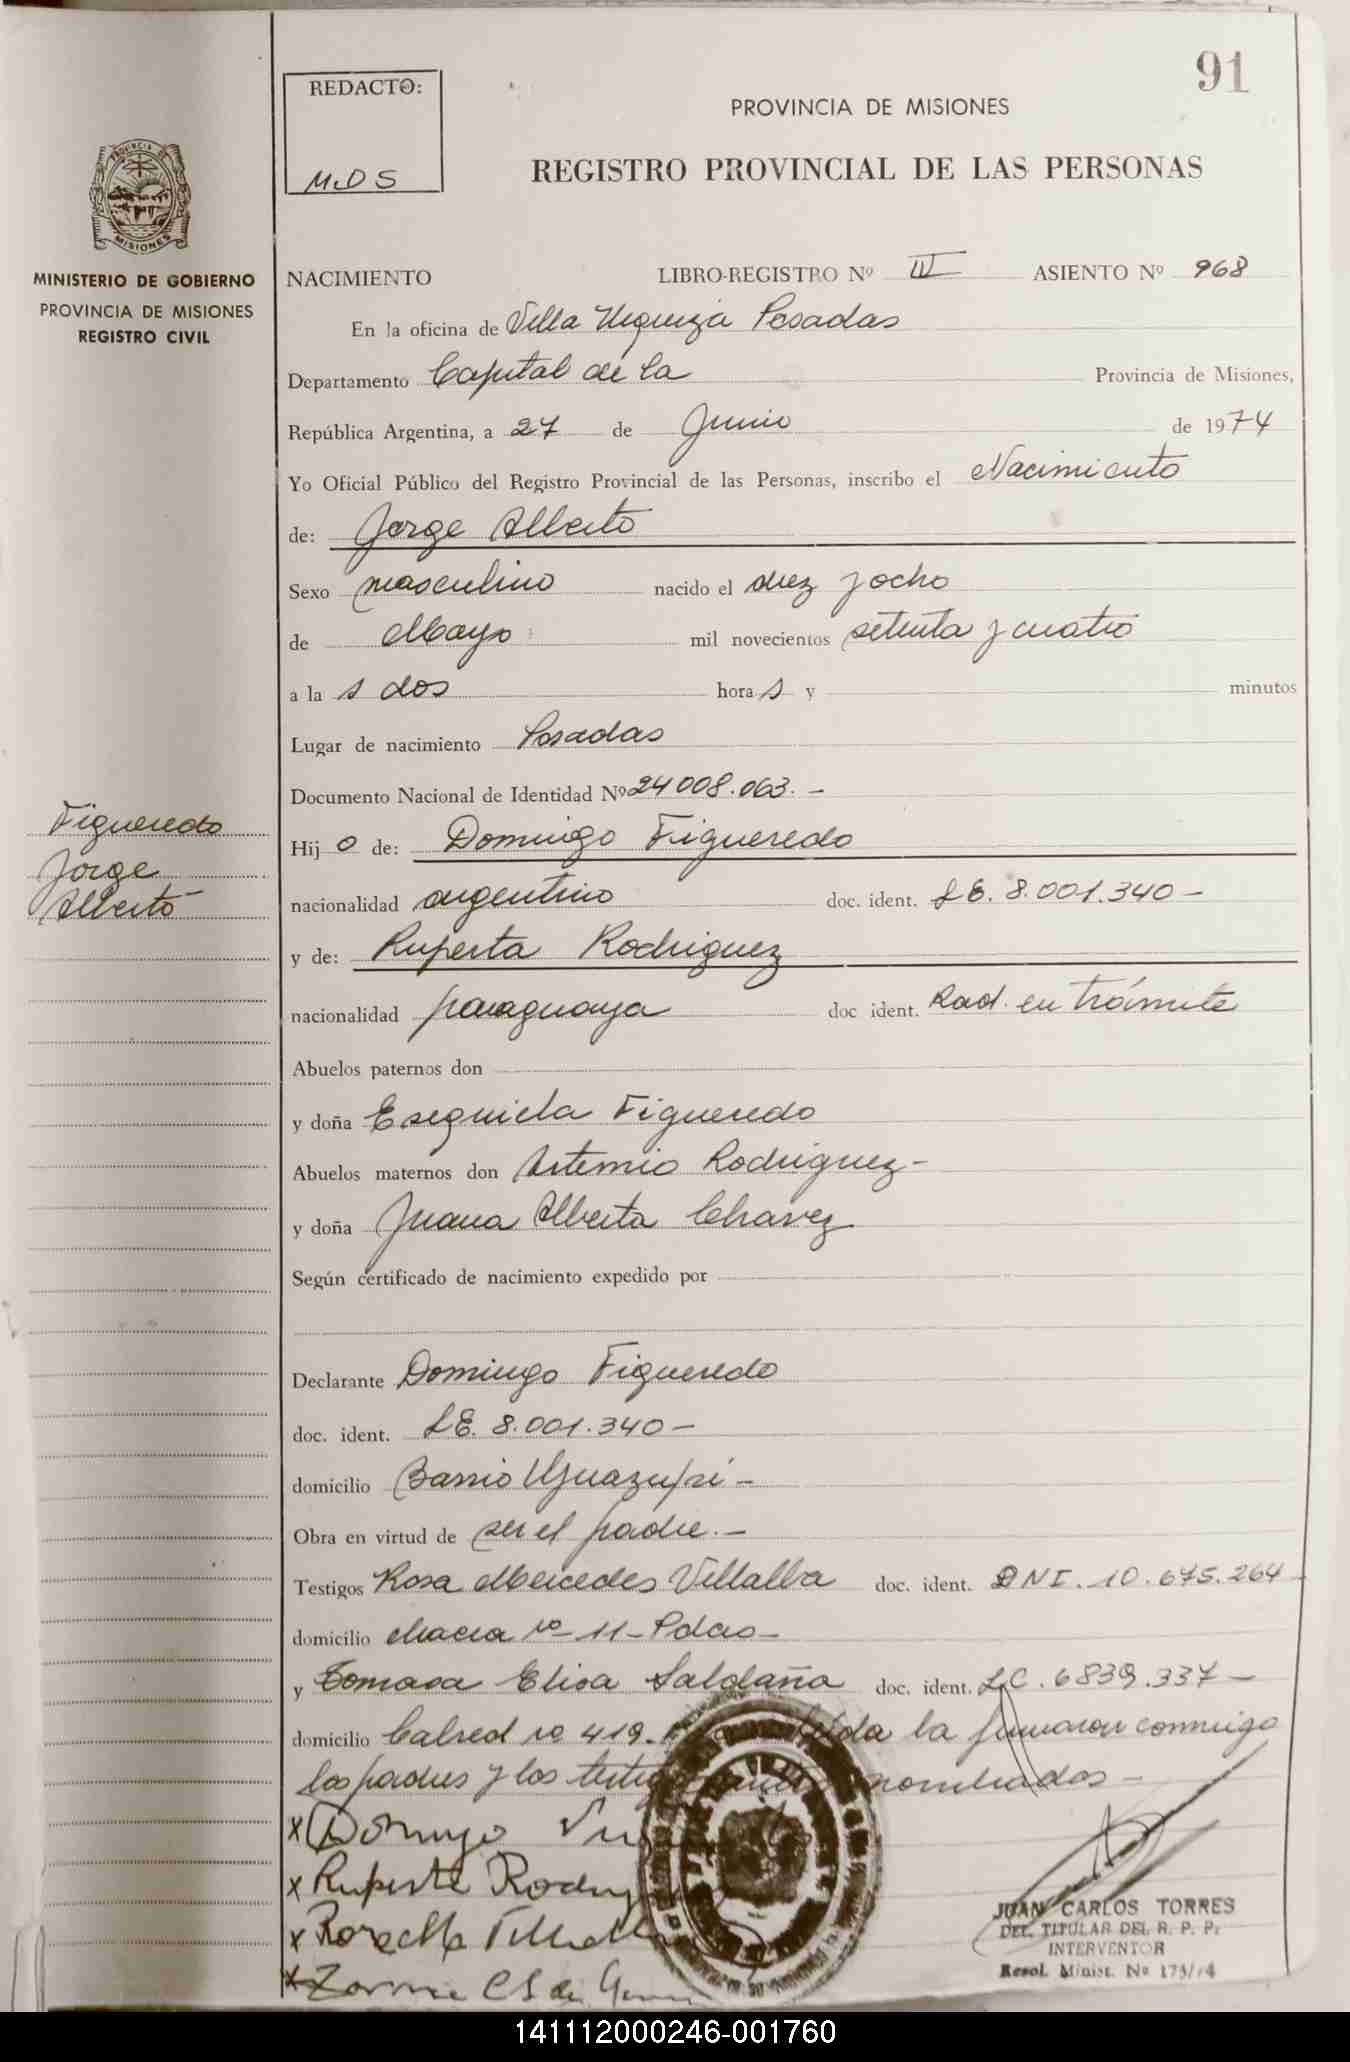 91
REDACTO:
M.D S
PROVINCIA DE MISIONES
REGISTRO PROVINCIAL DE LAS PERSONAS
PROVINCIA DE
MISIONES
MINISTERIO DE GOBIERNO
PROVINCIA DE MISIONES
REGISTRO CIVIL
NACIMIENTO LIBRO-REGISTRO Nº IV ASIENTO Nº 968
En la oficina de Villa Urquiza Posadas
Departamento Capital de la Provincia de Misiones,
República Argentina, a 27 de Junio de 1974
Yo Oficial Público del Registro Provincial de las Personas, inscribo el Nacimiento
de: Jorge Alberto
Sexo masculino nacido el diez y ocho
de Mayo mil novecientos setenta y cuatro
a la s dos hora s y minutos
Lugar de nacimiento Posadas
Documento Nacional de Identidad Nº 24008.063.-
Figueredo
Jorge
Alberto
Hij o de: Domingo Figueredo
nacionalidad argentino doc. ident. LE. 8.001.340-
y de: Ruperta Rodriguez
nacionalidad paraguaya doc ident. Rad. en trámite
Abuelos paternos don
y doña Esequiela Figueredo
Abuelos maternos don Artemio Rodriguez-
y doña Juana Alberta Chavez
Según certificado de nacimiento expedido por
Declarante Domingo Figueredo
doc. ident. LE. 8.001.340-
domicilio Barrio Yguazupí-
Obra en virtud de ser el padre.-
Testigos Rosa Mercedes Villalba doc. ident. DNI. 10.675.264
domicilio chacra nº 11-Pdas-
y Tomasa Elisa Saldaña doc. ident. L.C. 6839.337-
domicilio Calred nº 419. la firmaron conmigo
los padres y los testigos nombrados-
x Domingo
x Ruperta
x
x
JUAN CARLOS TORRES
DEL. TITULAR DEL R. P. P.
INTERVENTOR
Resol. Minist. Nº 175/74
141112000246-001760